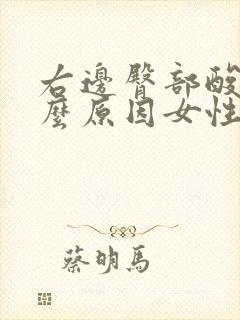 右邊臀部酸
麼原因女性
蔡明馬